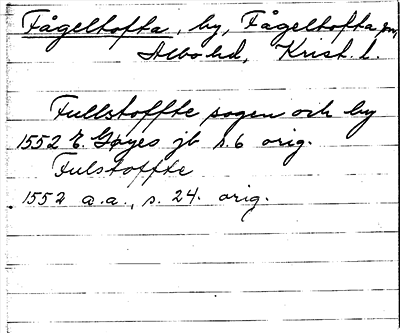 Fågeltofta, by, Fågeltofta sn,
Albo hd, Krist. l.
Fullstoffte sogen och by
1552 E. Gøyes jb s. 6 orig.
Fulstoffte
1552 a.a., s. 24. orig.